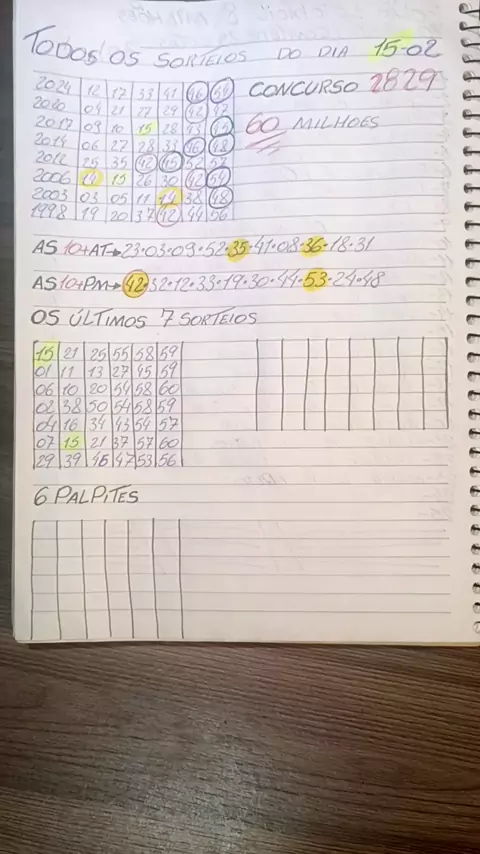 TODOS OS SORTEIOS DO DIA 15-02
2024 12 17 33 41 46 54
CONCURSO 2829
2020 04 21 22 29 42 47
2017 09 10 15 28 43
60 MILHOES
2014 06 27 28 33 46 48
2012 25 35 42 45 52 57
2006 14 15 26 30 42 54
2003 03 05 11 14 38 48
1998 19 20 37 42 44 56
AS 10+AT→23·03·09·52·35·41·08·36·18·31
AS 10+PM→42·32·12·33·19·30·44·53·24·48
OS ÚLTIMOS 7 SORTEIOS
15 21 25 55 58 59
01 11 13 27 45 59
06 10 20 54 58 60
02 38 50 54 58 59
04 16 34 43 54 57
07 15 21 37 57 60
29 39 46 47 53 56
6 PALPITES